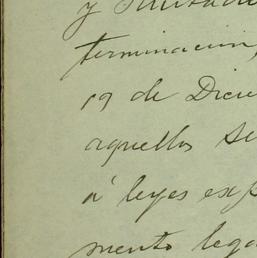 y
terminacion,
19 de Dici
aquellos se
á leyes exp
mento lega